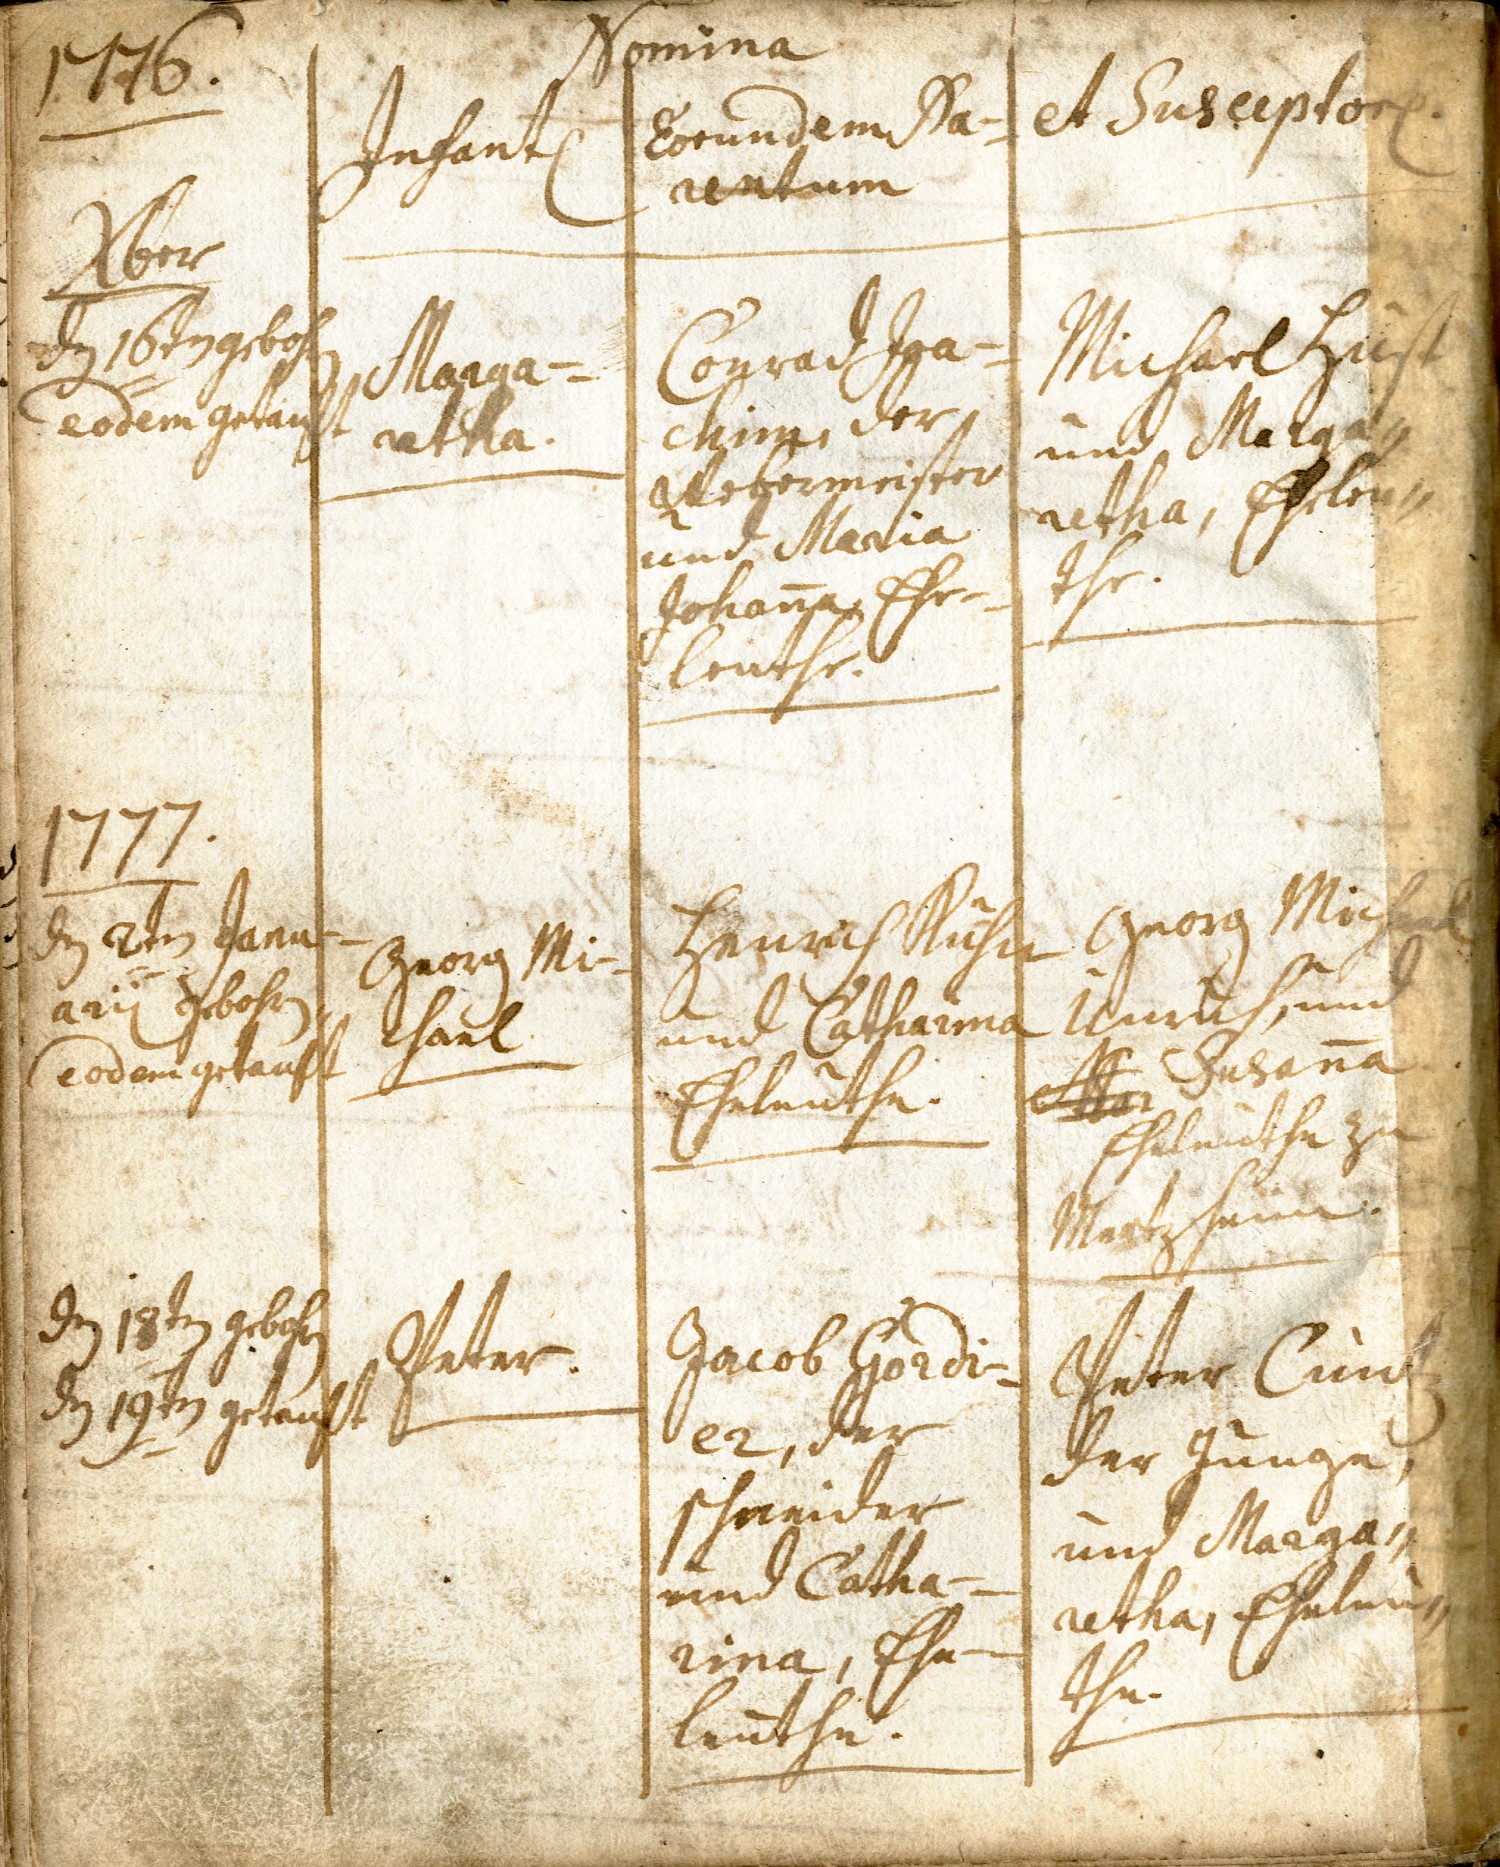 1776.
Nomina
Infant
Eorundem Pa-
rentum
et Susceptor.
Xber
den 16ten gebohren
eodem getaufft
Marga-
retha.
Conrad Joa-
chim, der
Webermeister
und Maria
Johanna Ehe-
leuthe.
Michael Hust
und Marga-
retha, Eheleu-
the.
1777.
den 2ten Janu-
arii gebohren
eodem getaufft
Georg Mi-
chael.
Henrich Kuhn
und Catharina
Eheleuthe.
Georg Michael
Unrich, und
Susanna
Eheleuthe zu
Mertzheim.
den 18ten gebohren
den 19ten getaufft
Peter.
Jacob Gordi-
er, der
schneider
und Catha-
rina, Ehe-
leuthe.
Peter Cuntz
der Junge,
und Marga-
retha, Eheleu-
the.